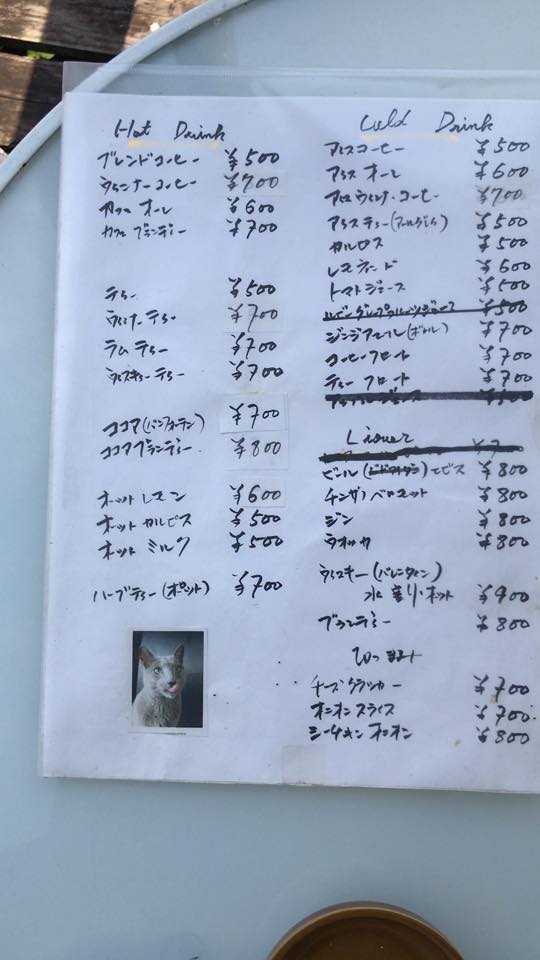 Hot Drink
ブレンドコーヒー ¥500
ウィンナーコーヒー ¥700
カフェ オーレ ¥600
カフェ ブランデー ¥700
ティー ¥500
ウィンナー ティー ¥700
ラム ティー ¥700
ウィスキー ティー ¥700
ココア(バンホーテン) ¥700
ココアブランデー ¥800
ホット レモン ¥600
ホット カルピス ¥500
ホット ミルク ¥500
ハーブティー(ポット) ¥700
Cold Drink
アイスコーヒー ¥500
アイス オーレ ¥600
アイス ウィンナ・コーヒー ¥700
アイス ティー(アールグレイ) ¥500
カルピス ¥500
レモネード ¥600
トマトジュース ¥500
¥500
ジンジアエール(ボトル) ¥700
コーヒーフロート ¥700
ティー フロート ¥700
Liquer
ビール( )エビス ¥800
チンザノ ベロモット ¥800
ジン ¥800
ウオッカ ¥800
ウィスキー(バレンタイン)
水割り・ホット ¥900
ブランデー ¥800
おつまみ
チーズクラッカー ¥700
オニオンスライス ¥700
シーチキン オニオン ¥800